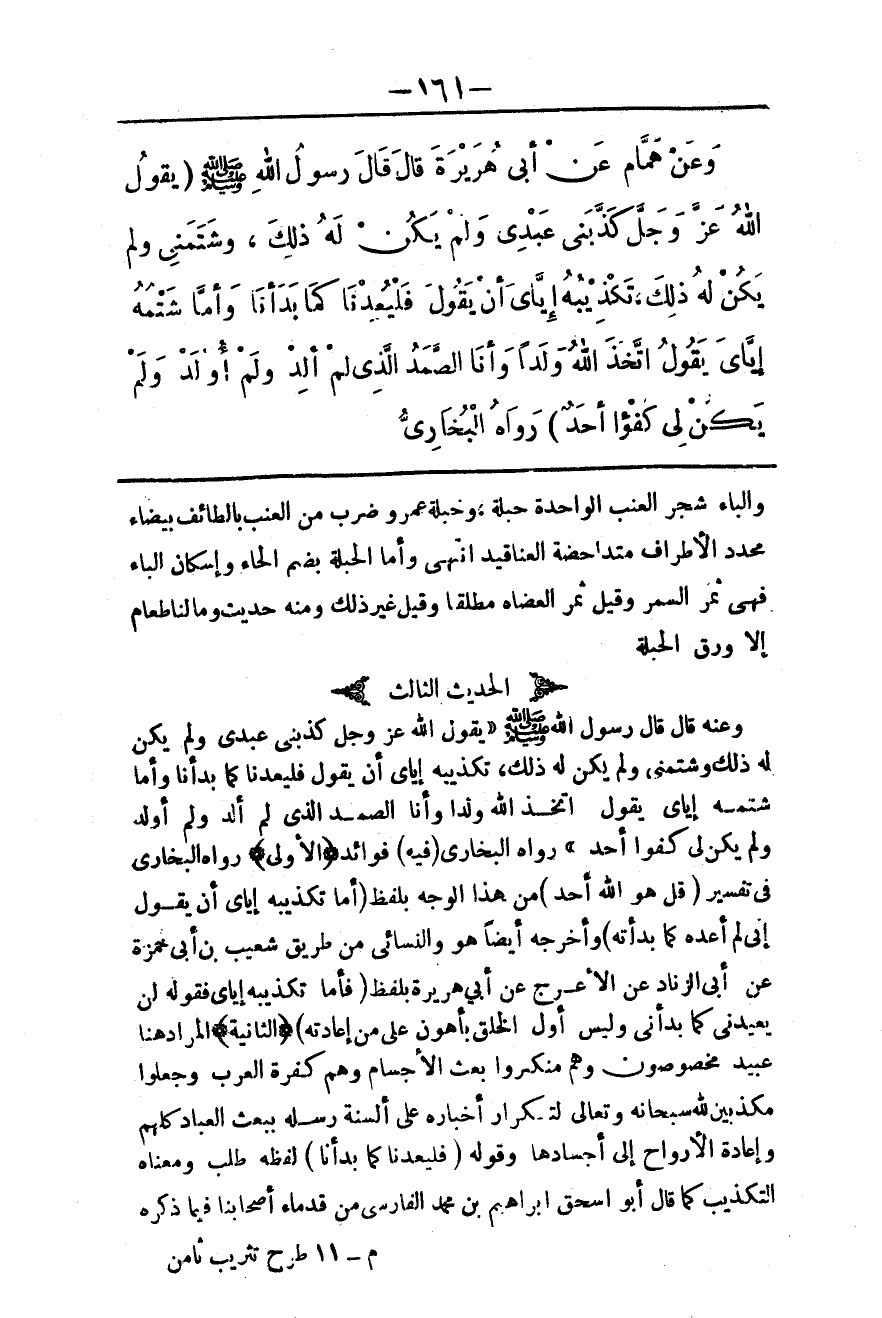 -١٦١-
وَعَنْ هَمَّامٍ عَنْ أبى هُرَيْرَةَ قالَ قَالَ رسولُ اللهِ ﷺ (يقولُ
اللهُ عزَّ وَجَلَّ كَذَّبَنى عَبْدِى وَلَمْ يَكُنْ لَهُ ذلِكَ ، وشَتَمَنِى ولم
يَكُنْ لهُ ذلِكَ ، تَكْذِيْبُهُ إِيَّاىَ أنْ يَقُولَ فَلْيُعِدْنَا كَمَا بَدَأنَا وَأمَّا شَتْمُهُ
إيَّاىَ يَقُولُ اتَّخَذَ اللهُ وَلَداً وَأنَا الصَّمَدُ الَّذِى لمْ ألِدْ ولَمْ أُولَدْ وَلَمْ
يَكُنْ لِى كُفُؤًا أحَدٌ) رَوَاهُ الْبُخَارِىُّ
والباء شجر العنب الواحدة حبلة ؛ وحبلة عمرو ضرب من العنب بالطائف بيضاء
محدد الأطراف متداحضة العناقيد انتهى وأما الحبلة بضم الحاء وإسكان الباء
فهى ثمر السمر وقيل ثمر العضاه مطلقا وقيل غير ذلك ومنه حديث ومالنا طعام
إلا ورق الحبلة
الحديث الثالث
وعنه قال قال رسول الله ﷺ «يقول الله عز وجل كذبنى عبدى ولم يكن
له ذلك وشتمنى ولم يكن له ذلك، تكذيبه إياى أن يقول فليعدنا كما بدأنا وأما
شتمه إياى يقول اتخذ الله ولدا وأنا الصمد الذى لم ألد ولم أولد
ولم يكن لى كفوا أحد » رواه البخارى (فيه) فوائد ﴿الأولى﴾ رواه البخارى
فى تفسير ( قل هو الله أحد ) من هذا الوجه بلفظ (أما تكذيبه إياى أن يقول
إنى لم أعده كما بدأته) وأخرجه أيضاً هو والنسائى من طريق شعيب بن أبى حمزة
عن أبى الزناد عن الأعرج عن أبي هريرة بلفظ ( فأما تكذيبه إياى فقوله لن
يعيدنى كما بدأنى وليس أول الخلق بأهون على من إعادته) ﴿الثانية﴾ المراد هنا
عبيد مخصوصون وهم منكروا بعث الأجسام وهم كفرة العرب وجعلوا
مكذبين لله سبحانه وتعالى لتكرار أخباره على ألسنة رسله ببعث العباد كلهم
وإعادة الأرواح إلى أجسادها وقوله ( فليعدنا كما بدأنا ) لفظه طلب ومعناه
التكذيب كما قال أبو اسحق ابراهيم بن محمد الفارسى من قدماء أصحابنا فيما ذكره
م - ١١ طرح تثريب ثامن